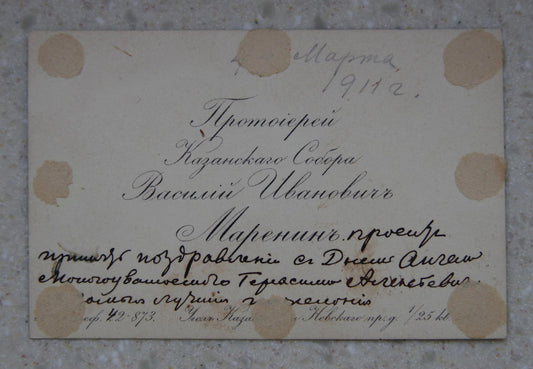 Марта
1911 г.
Протоіерей
Казанскаго Собора
Василій Ивановичъ
Маренинъ. проситъ
принять поздравленія съ Днемъ Ангела
Многоуважаемаго Герасима Алексѣевич
лучшія
42-873. Уголъ Каза Невскаго пр. д. 1/25 кв